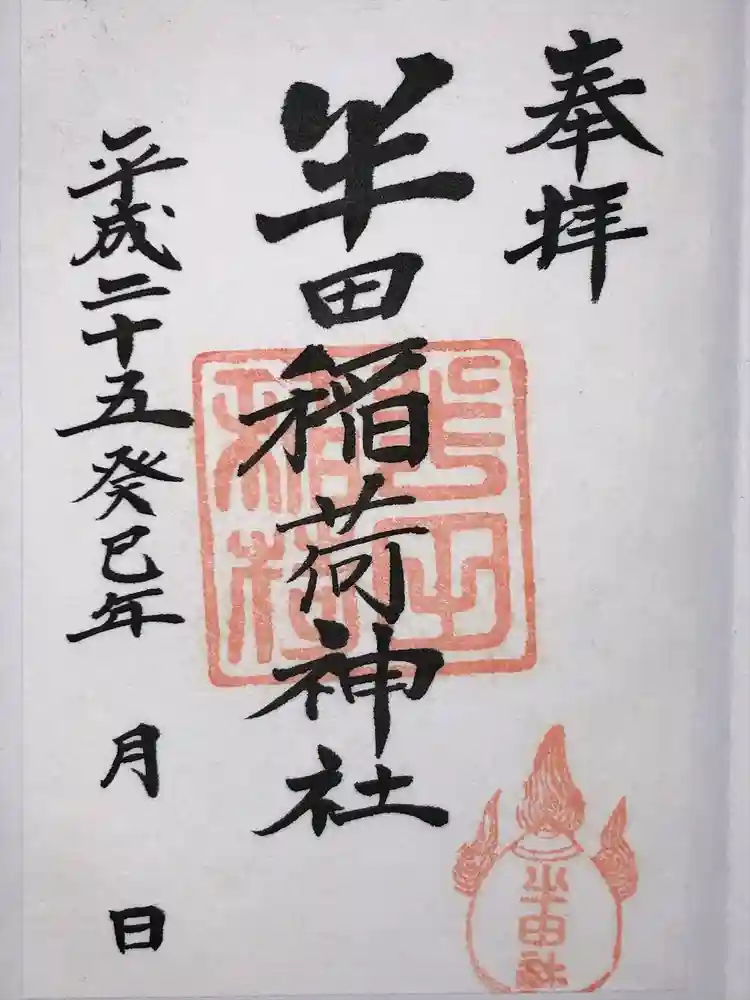 奉拝
半田稲荷神社
平成二十五癸巳年 月 日
半田
稲荷
半田社